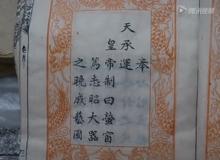 奉
天承運
皇帝制曰螢窗
篤志昭大器
之晚成藝圃
腾讯视频